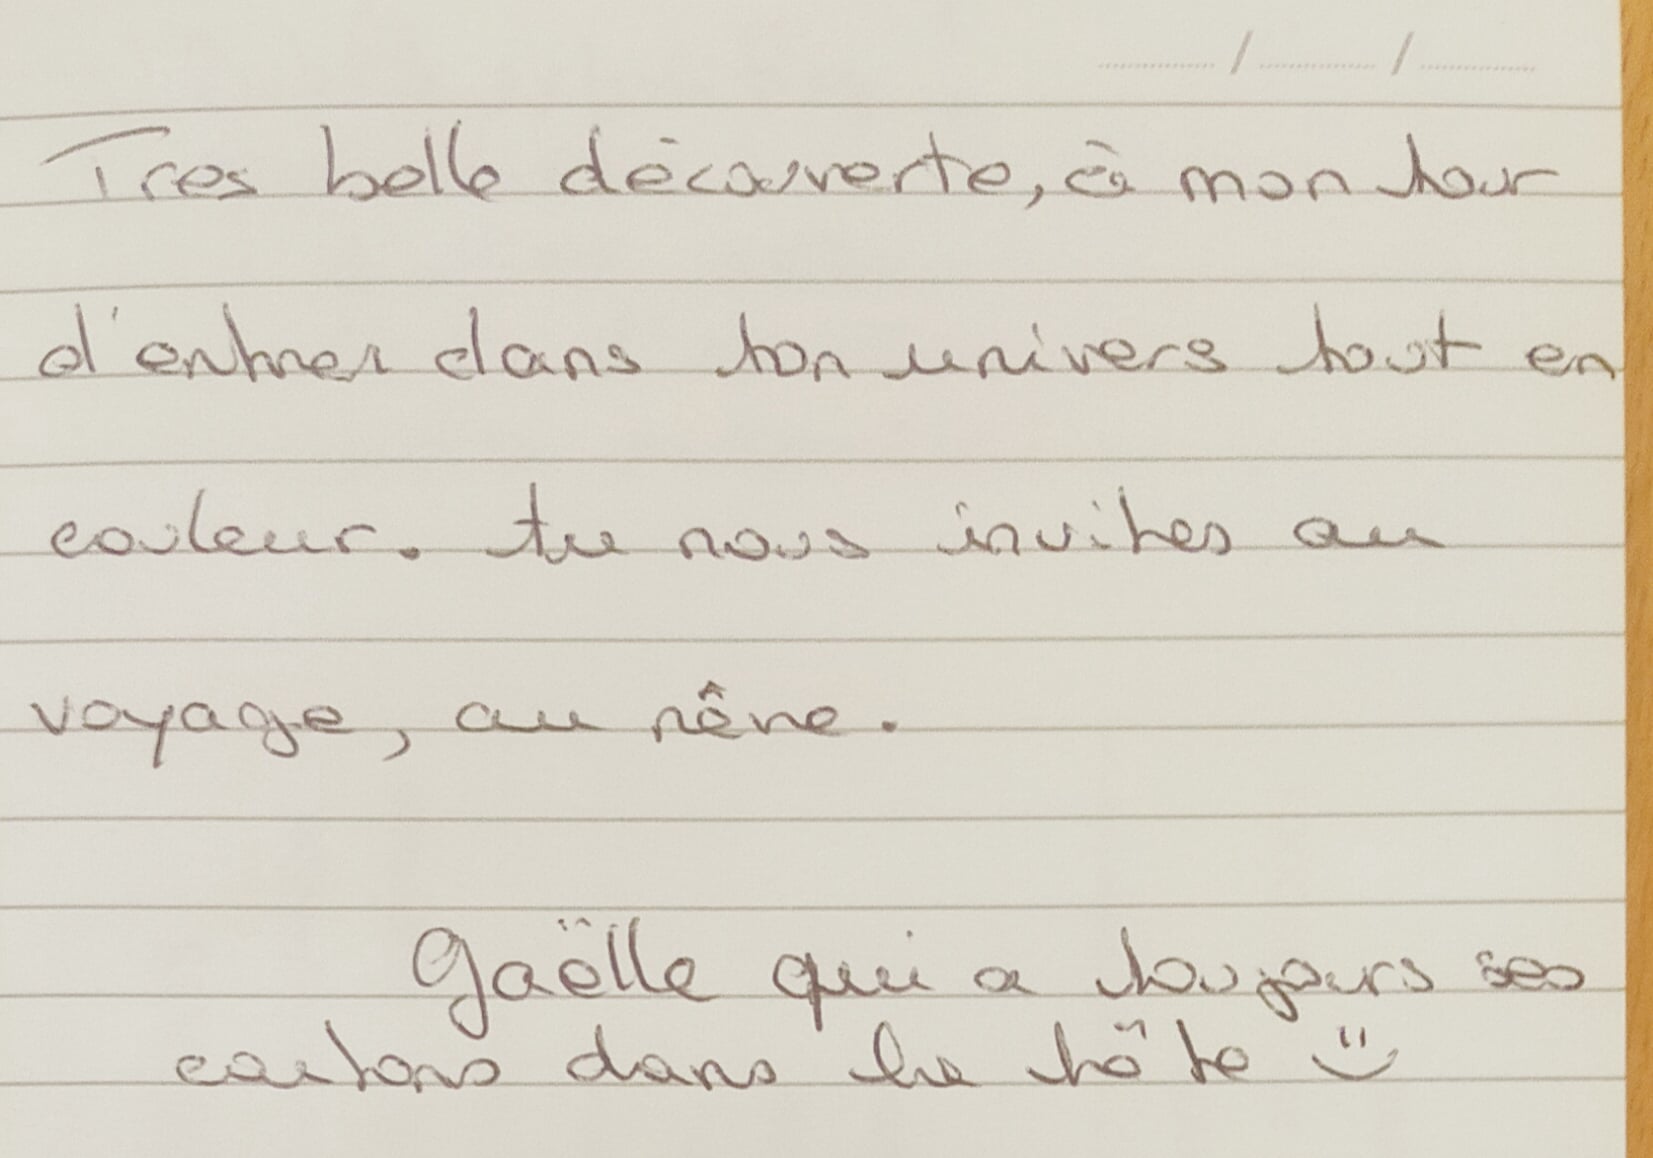 Tres belle découverte, à mon tour
d'entrer dans ton univers tout en
couleur. tu nous invites au
voyage, au rêve.
Gaëlle qui a toujours ses
cartons dans la tête